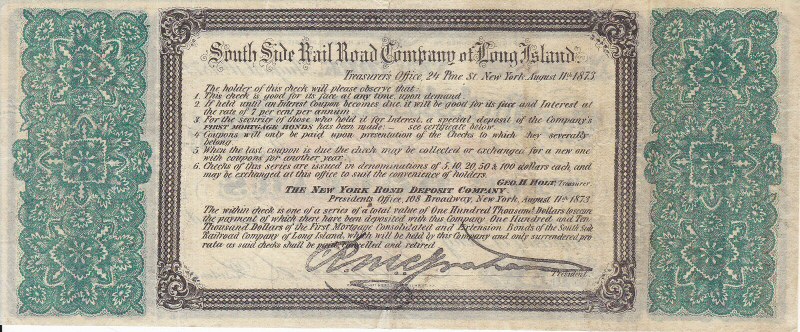 South Side Rail Road Company of Long Island.
Treasurers Office, 24 Pine St. New York, August 11th 1873
The holder of this check will please observe that
1. This check is good for its face at any time upon demand
2. If held until an Interest Coupon becomes due, it will be good for its face and Interest at
the rate of 7 per cent per annum
3. For the security of those who hold it for Interest, a special deposit of the Company's
FIRST MORTGAGE BONDS has been made: — see certificate below
4. Coupons will only be paid upon presentation of the Checks to which they severally
belong
5. When the last coupon is due the check may be collected or exchanged for a new one
with coupons for another year
6. Checks of this series are issued in denominations of 5, 10, 20, 50 & 100 dollars each, and
may be exchanged at this office to suit the convenience of holders.
GEO. H. HOLT, Treasurer
THE NEW YORK BOND DEPOSIT COMPANY.
Presidents Office, 108 Broadway, New York, August 11th 1873.
The within check is one of a series of a total value of One Hundred Thousand Dollars to secure
the payment of which there have been deposited with this Company One Hundred and Ten
Thousand Dollars of the First Mortgage Consolidated and Extension Bonds of the South Side
Railroad Company of Long Island, which will be held by this Company and only surrendered pro
rata as said checks shall be paid, cancelled and retired
Graham
President